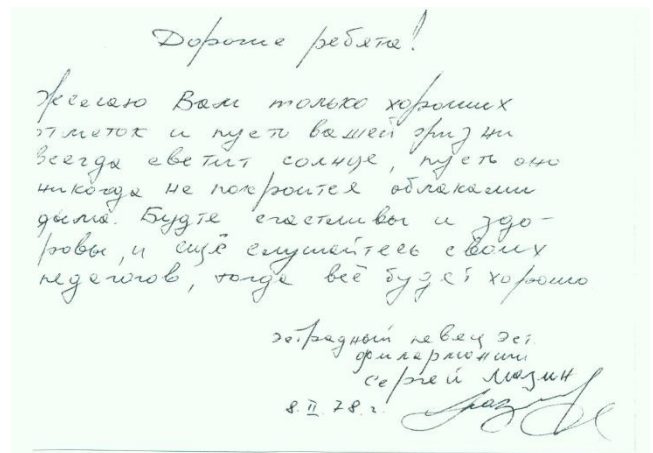 Дорогие ребята!
Желаю Вам только хороших
отметок и пусть вашей жизни
всегда светит солнце, пусть оно
никогда не покроится облаками
дыма. Будте счастливы и здо-
ровы, и ещё слушайтесь своих
педагогов, тогда всё будет хорошо
эстрадный певец Эст.
филармонии
Сергей Мазин
8.II.78 г.